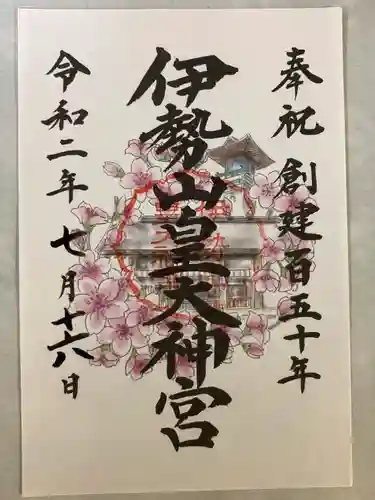 奉祝 創建百五十年
伊勢山皇大神宮
令和二年七月十六日